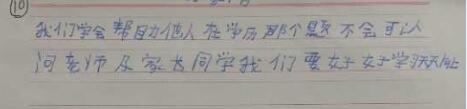 (10)
我们学会帮助他人在学历那个题不会可以
问老师及家长同学我们要好好学习天天向上